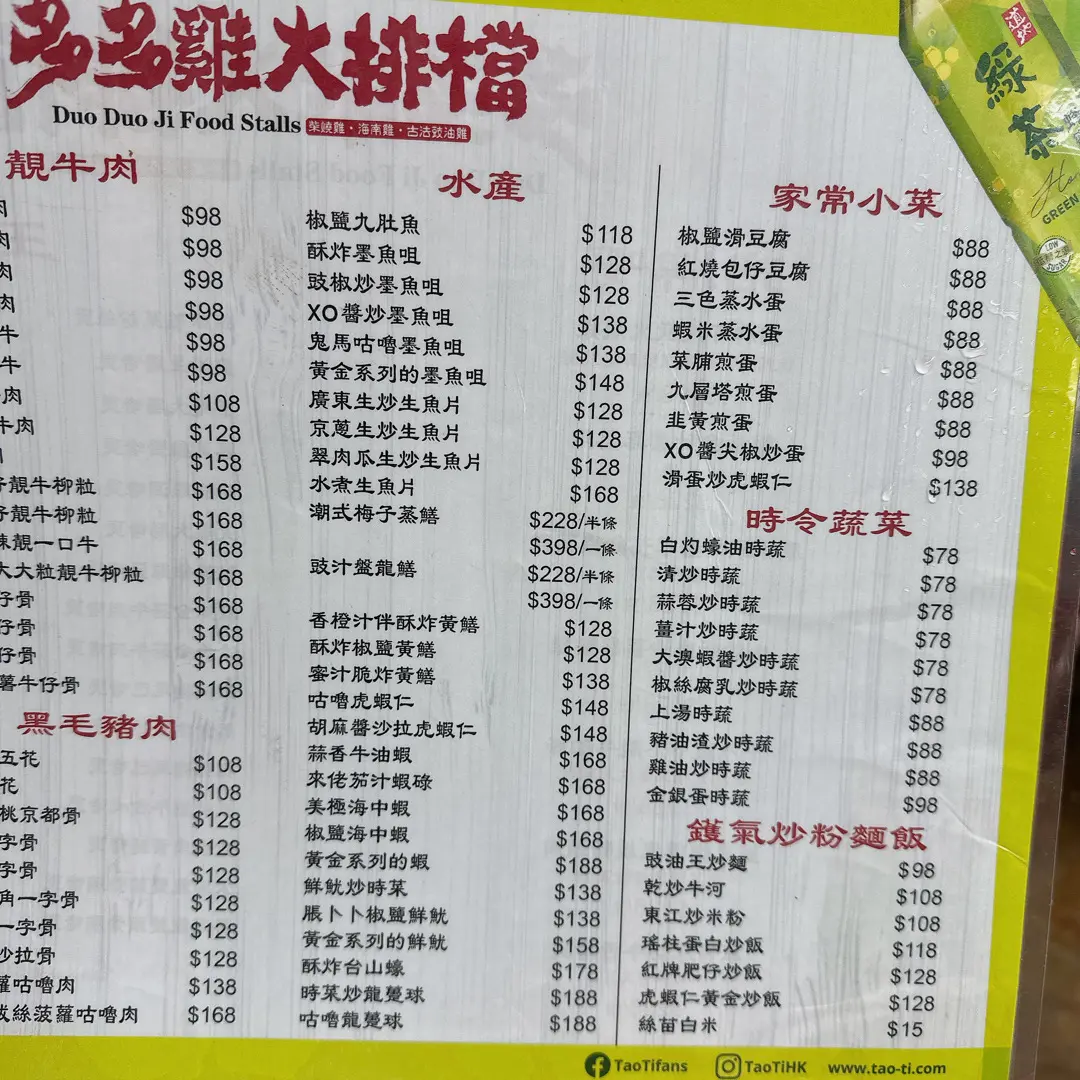 多多雞大排檔
Duo Duo Ji Food Stalls 柴燒雞·海南雞·古法豉油雞
靚牛肉
肉 $98
肉 $98
肉 $98
肉 $98
牛 $98
牛 $98
肉 $108
牛肉 $128
$158
靚牛柳粒 $168
靚牛柳粒 $168
辣靚一口牛 $168
大大粒靚牛柳粒 $168
仔骨 $168
仔骨 $168
仔骨 $168
薯牛仔骨 $168
黑毛豬肉
五花 $108
花 $108
桃京都骨 $128
字骨 $128
字骨 $128
角一字骨 $128
一字骨 $128
沙拉骨 $128
蘿咕嚕肉 $138
拔絲菠蘿咕嚕肉 $168
水產
椒鹽九肚魚 $118
酥炸墨魚咀 $128
豉椒炒墨魚咀 $128
XO醬炒墨魚咀 $138
鬼馬咕嚕墨魚咀 $138
黃金系列的墨魚咀 $148
廣東生炒生魚片 $128
京蔥生炒生魚片 $128
翠肉瓜生炒生魚片 $128
水煮生魚片 $168
潮式梅子蒸鱔 $228/半條
$398/一條
豉汁盤龍鱔 $228/半條
$398/一條
香橙汁伴酥炸黃鱔 $128
酥炸椒鹽黃鱔 $128
蜜汁脆炸黃鱔 $138
咕嚕虎蝦仁 $148
胡麻醬沙拉虎蝦仁 $148
蒜香牛油蝦 $168
來佬茄汁蝦碌 $168
美極海中蝦 $168
椒鹽海中蝦 $168
黃金系列的蝦 $188
鮮魷炒時菜 $138
脹卜卜椒鹽鮮魷 $138
黃金系列的鮮魷 $158
酥炸台山蠔 $178
時菜炒龍躉球 $188
咕嚕龍躉球 $188
家常小菜
椒鹽滑豆腐 $88
紅燒包仔豆腐 $88
三色蒸水蛋 $88
蝦米蒸水蛋 $88
菜脯煎蛋 $88
九層塔煎蛋 $88
韭黃煎蛋 $88
XO醬尖椒炒蛋 $98
滑蛋炒虎蝦仁 $138
時令蔬菜
白灼蠔油時蔬 $78
清炒時蔬 $78
蒜蓉炒時蔬 $78
薑汁炒時蔬 $78
大澳蝦醬炒時蔬 $78
椒絲腐乳炒時蔬 $78
上湯時蔬 $88
豬油渣炒時蔬 $88
雞油炒時蔬 $88
金銀蛋時蔬 $98
鑊氣炒粉麵飯
豉油王炒麵 $98
乾炒牛河 $108
東江炒米粉 $108
瑤柱蛋白炒飯 $118
紅牌肥仔炒飯 $128
虎蝦仁黃金炒飯 $128
絲苗白米 $15
TaoTifans TaoTiHK www.tao-ti.com
道地
綠茶
GREEN
LOW
SUGAR